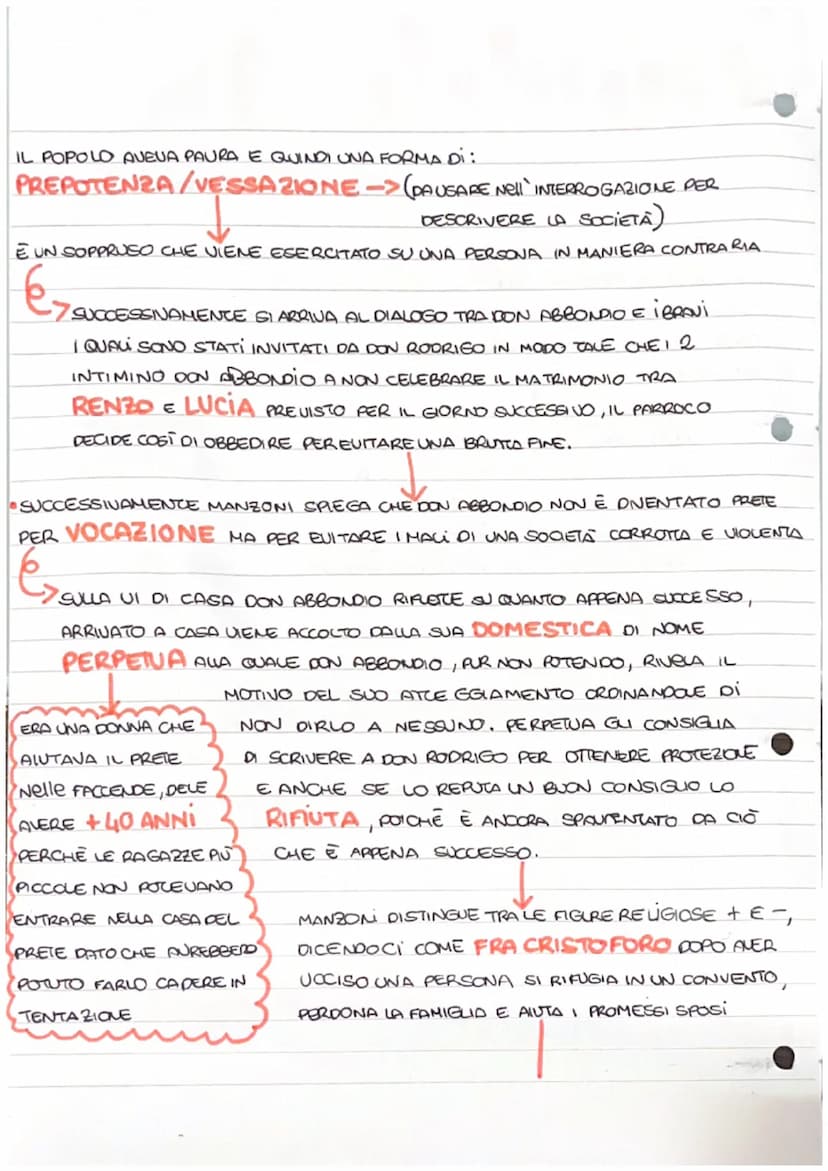 IL POPOLO AVEVA PAURA E QUINDI UNA FORMA DI:
PREPOTENZA/VESSAZIONE -> (DA USARE NELL'INTERROGAZIONE PER
DESCRIVERE LA SOCIETÀ)
È UN SOPPRUSO CHE VIENE ESERCITATO SU UNA PERSONA IN MANIERA CONTRARIA
SUCCESSIVAMENTE SI ARRIVA AL DIALOGO TRA DON ABBONDIO E I BRAVI
I QUALI SONO STATI INVITATI DA DON RODRIGO IN MODO TALE CHE I 2
INTIMINO DON ABBONDIO A NON CELEBRARE IL MATRIMONIO TRA
RENZO E LUCIA PREVISTO PER IL GIORNO SUCCESSIVO, IL PARROCO
DECIDE COSÌ DI OBBEDIRE PER EVITARE UNA BRUTTA FINE.
• SUCCESSIVAMENTE MANZONI SPIEGA CHE DON ABBONDIO NON È DIVENTATO PRETE
PER VOCAZIONE MA PER EVITARE I MALI DI UNA SOCIETÀ CORROTTA E VIOLENTA
SULLA VI DI CASA DON ABBONDIO RIFLETTE SU QUANTO APPENA SUCCESSO,
ARRIVATO A CASA VIENE ACCOLTO DALLA SUA DOMESTICA DI NOME
PERPETUA ALLA QUALE DON ABBONDIO, PUR NON POTENDO, RIVELA IL
MOTIVO DEL SUO ATTEGGIAMENTO ORDINANDOLE DI
NON DIRLO A NESSUNO. PERPETUA GLI CONSIGLIA
DI SCRIVERE A DON RODRIGO PER OTTENERE PROTEZIONE
E ANCHE SE LO REPUTA UN BUON CONSIGLIO LO
RIFIUTA, POICHÈ È ANCORA SPAVENTATO DA CIÒ
CHE È APPENA SUCCESSO.
ERA UNA DONNA CHE
AIUTAVA IL PRETE
NELLE FACCENDE, DEVE
AVERE +40 ANNI
PERCHÈ LE RAGAZZE PIÙ
PICCOLE NON POTEVANO
ENTRARE NELLA CASA DEL
PRETE DATO CHE AVREBBERO
POTUTO FARLO CADERE IN
TENTAZIONE
MANZONI DISTINGUE TRA LE FIGURE RELIGIOSE + E -,
DICENDOCI COME FRA CRISTOFORO DOPO AVER
UCCISO UNA PERSONA SI RIFUGIA IN UN CONVENTO,
PERDONA LA FAMIGLIA E AIUTA I PROMESSI SPOSI